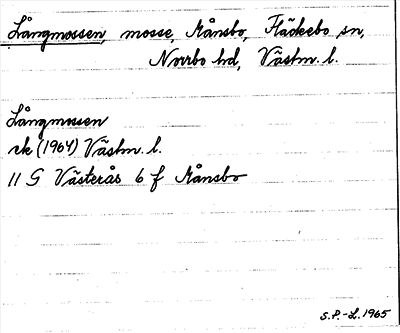 Långmossen, mosse, Månsbo, Fläckebo sn,
Norrbo hd, Västm. l.
Långmossen
ek (1964) Västm. l.
11 G Västerås 6 f Månsbo
S.P.-L. 1965